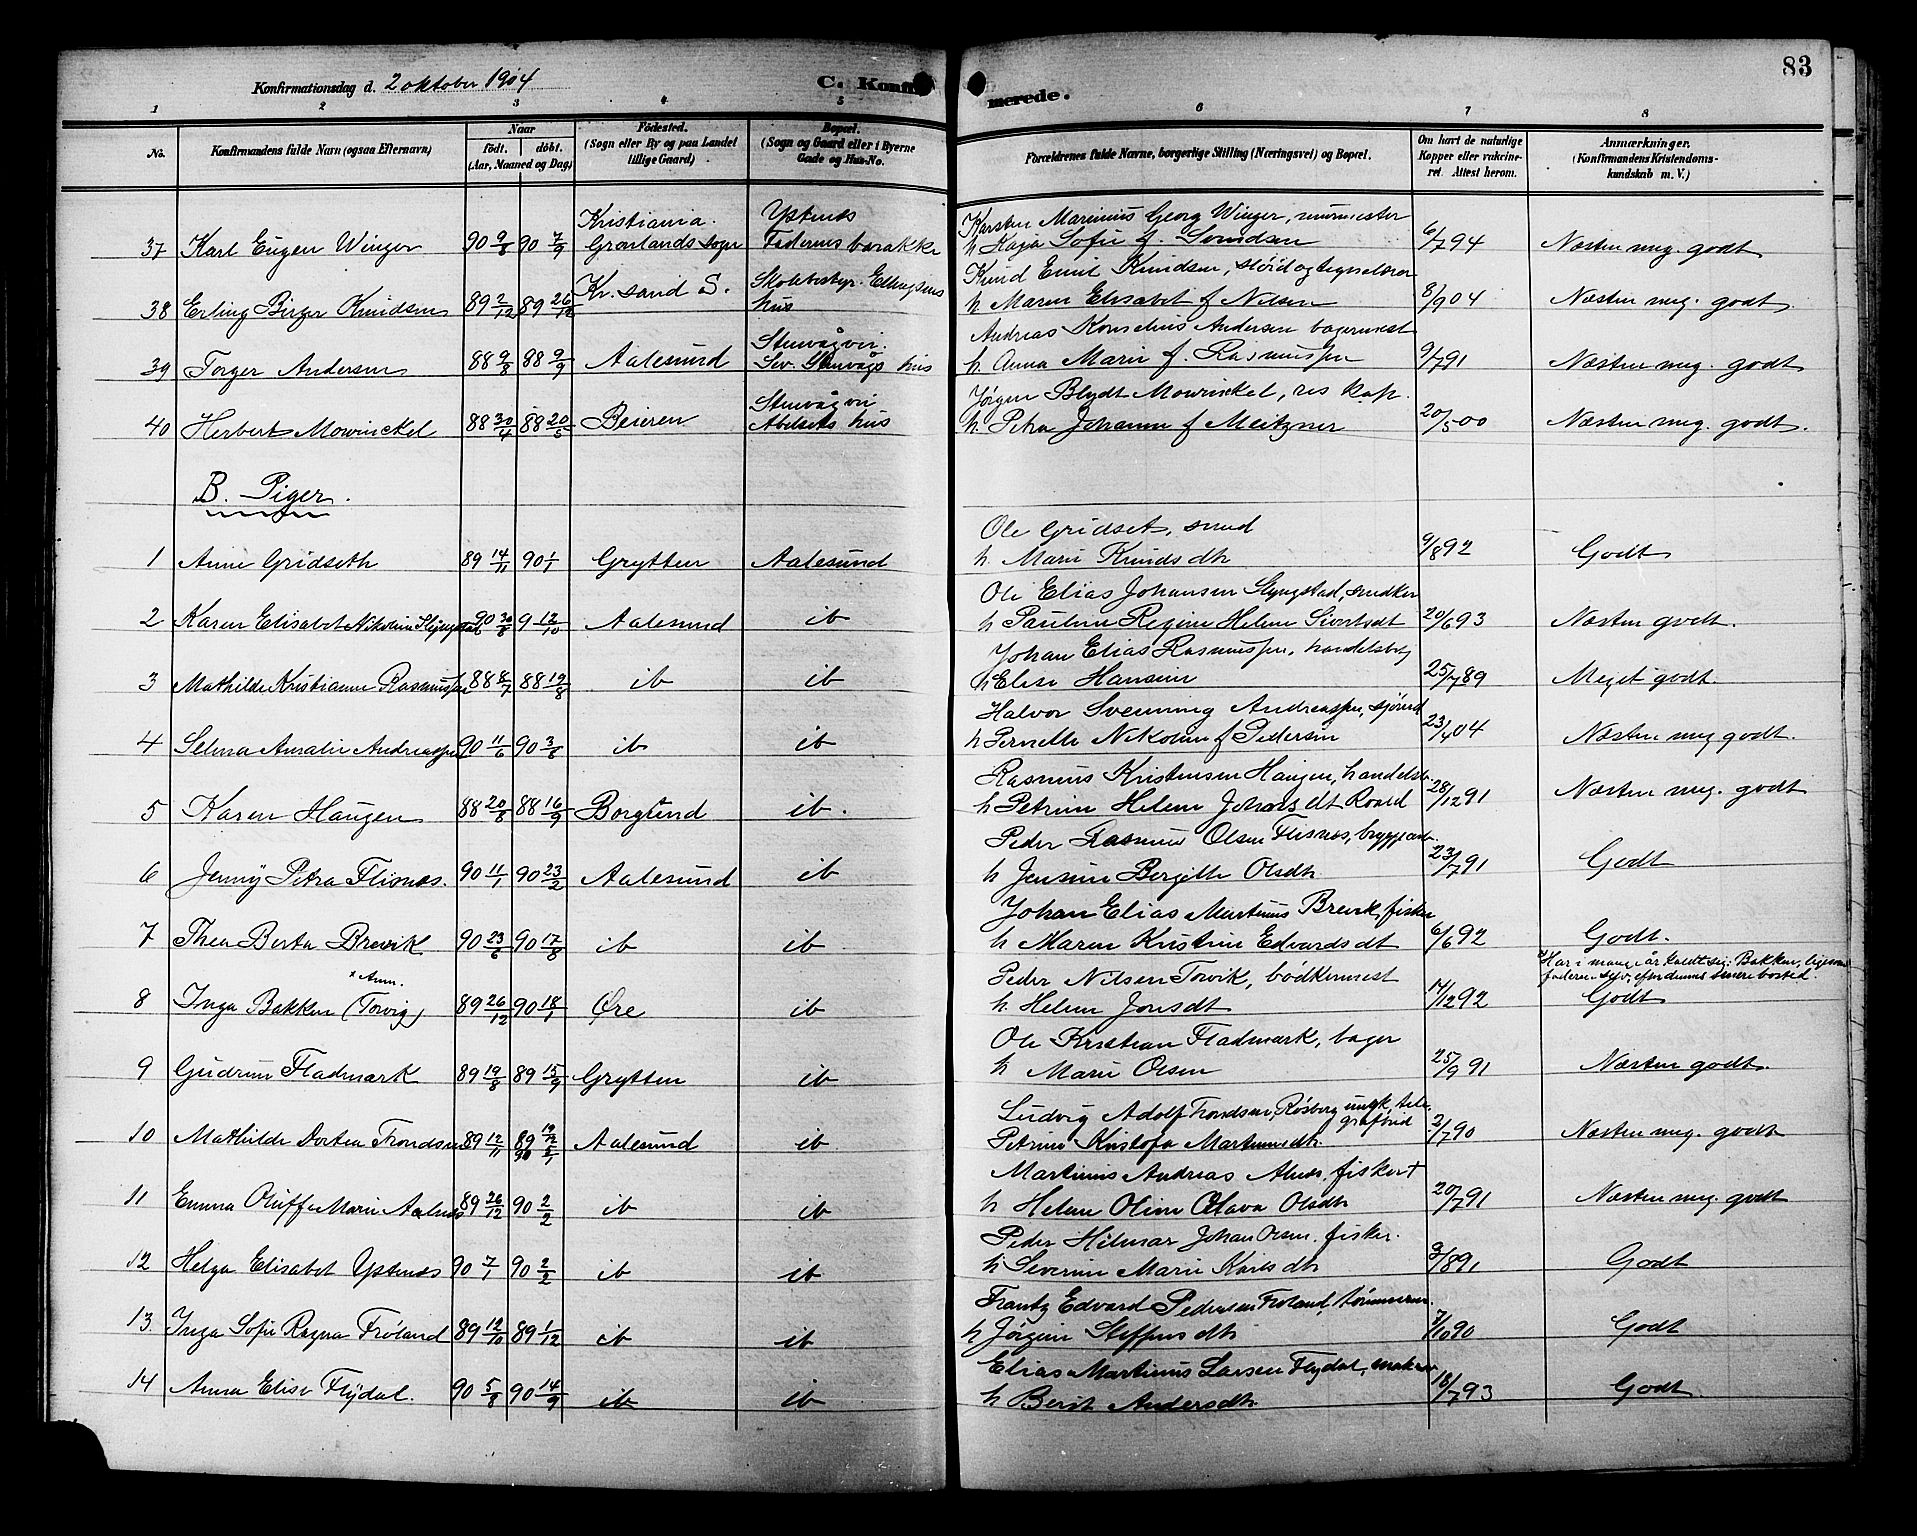 83
Konfirmationsdag d. 2 oktober 1904
C. Konfirmerede.
1 2 3 4 5 6 7 8
No. Konfirmandens fulde Navn (ogsaa Efternavn) Naar født. døbt. (Aar, Maaned og Dag) Fødested. (Sogn eller By og paa Landet tillige Gaard) Bopæl. (Sogn og Gaard eller i Byerne Gade og Hus-No. Forældrenes fulde Navne, borgerlige Stilling (Næringsvei) og Bopæl. Om havt de naturlige Kopper eller vakcineret. Attest herom. Anmærkninger. (Konfirmandens Kristendomskundskab m. V.)
Kristiania. Ystenes Karsten Marinius Georg Winger, murmester
37 Karl Eugen Winger 90 9/6 90 7/9 Grønlands sogn Faderens barakke h. Kaja Sofie f. Svendsen 6/7 94 Næsten meg. godt
Kr.sand S. Skolebestyr. Ellingsens Knud Emil Knudsen, sløid og tegnelærer
38 Erling Birger Knudsen 89 2/12 89 26/12 hus h. Maren Elisabet f Nilsen 8/9 04 Næsten meg. godt.
Stenvågvei. Andreas Kornelius Andersen bagermest
39 Torger Andersen 88 9/8 88 9/9 Aalesund Sev. Stenvågs hus h. Anna Marie f. Rasmussen 9/7 91 Næsten meg. godt
Stenvågvei Jørgen Blydt Mowinckel, res kap.
40 Herbert Mowinckel 88 30/4 88 20/5 Beieren Abelseths hus h. Petra Johanne f Meitzner 20/5 00 Næsten meg. godt.
B. Piger.
Ole Gridset, smed
1 Anne Gridseth 89 14/11 90 1/1 Grytten Aalesund h. Marie Knudsdtr 9/8 92 Godt
Ole Elias Johansen Slyngstad, snedker
2 Karen Elisabet Nikoline Slyngstad 90 30/8 9 12/10 Aalesund ib h Pauline Regine Helene Sivertsdt 20/6 93 Næsten godt.
Johan Elias Rasmussen, handelsbetj
3 Mathilde Kristianne Rasmussen 88 8/7 88 19/8 ib ib h Elise Hansine 25/7 89 Meget godt.
Halvor Svenning Andreassen, sjømd
4 Selma Amalie Andreassen 90 11/6 90 3/8 ib ib h Pernelle Nikoline f Pedersen 23/4 04 Næsten meg godt.
Rasmus Kristensen Haugen, handelsb.
5 Karen Haugen 88 20/8 88 16/9 Borgund ib. h Petrine Helene Johansdt Roald 28/12 91 Næsten meg. godt
Peder Rasmus Olsen Flisnes, bryggearb.
6 Jenny Petra Flisnæs. 90 11/1 90 23/2 Aalesund ib h Jensine Bergitte Olsdtr 23/7 91 Godt
Johan Elias Martinus Brevik, fisker
7 Thea Berta Brevik 90 23/6 90 17/8 ib ib h Maren Kristine Edvardsdt 6/6 92 Godt.
x Anm. Peder Nilsen Torvik, bødkermest x Har i mange år kaldt sig: Bakken, ligesom faderen selv, efter dennes senere bosted.
8 Inga Bakken (Torvig) 89 26/12 90 18/1 Øre ib h. Helene Jonsdt 17/12 92 Godt
Ole Kristian Fladmark, bager
9 Gudrun Fladmark 89 19/8 89 15/9 Grytten ib h Marie Olsen 25/9 91 Næsten godt.
Ludvig Adolf Trondsen, Røsberg ungk, telegrafbud
10 Mathilde Dortea Trondsen 89 12/11 89 19/12 90 5/1 Aalesund ib Petrine Kristofa Martinusdtr 2/7 90 Næsten meg. godt
Martinus Andreas Alnes, fisker +
11 Emma Oluffe Marie Aalnes 89 26/12 90 2/2 ib ib h Helene Oline Olava Olsdtr 20/7 91 Næsten meg. godt
Peder Hilmar Johan Olsen. fisker.
12 Helga Elisabet Ystenes 90 7/1 90 2/2 ib ib h Severine Marie Karlsdtr 3/8 91 Godt
Frantz Edvard Pedersen Frøland, tømmerm.
13. Inga Sofie Ragna Frøland 89 12/10 89 1/12 ib ib h Jørgine Steffensdtr 7/10 90 Godt
Elias Martinus Larsen Flydal,
14 Anna Elise Flydal. 90 5/8 90 14/9 ib ib h Berit Andersdtr 18/7 93 Godt